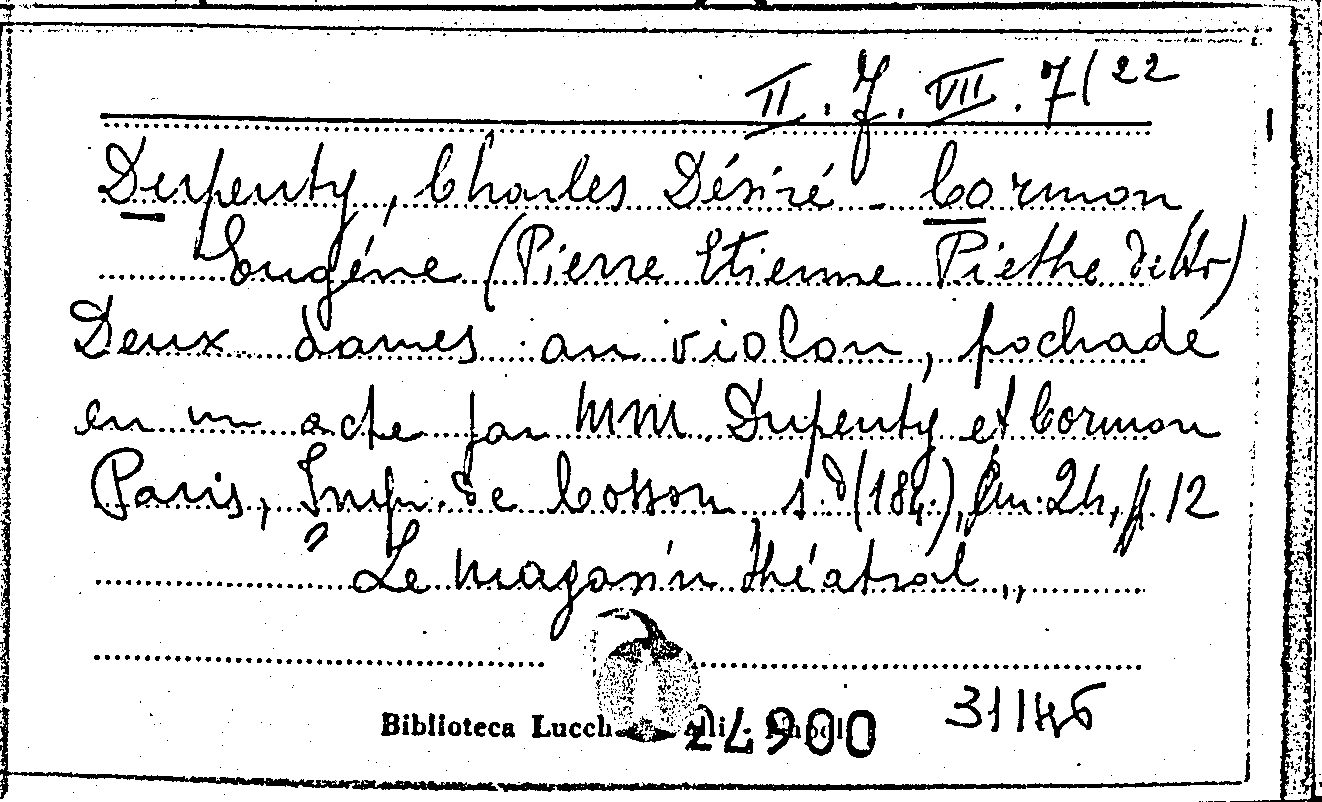 II. J. VII. 7/22
Dupeuty, Charles Désiré - Cormon
Eugéne (Pierre Etienne Piethe detto)
Deux dames au violon, pochade
en un acte par MM. Dupeuty et Cormon
Paris, Impr. de Cosson, s.d (184.), cm. 24, p. 12
" Le magasin théatral "
Biblioteca Lucch
24900
31146